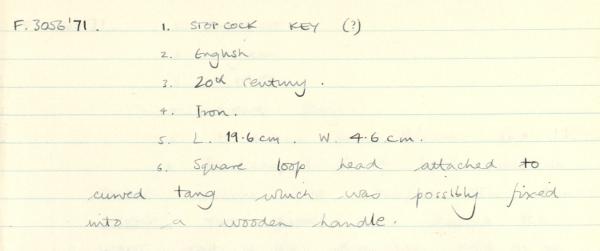 F.3056'71. 1. STOPCOCK KEY (?)
2. English
3. 20th century.
4. Iron.
5. L. 19.6cm. W. 4.6 cm.
6. Square loop head attached to
curved tang which was possibly fixed
into a wooden handle.